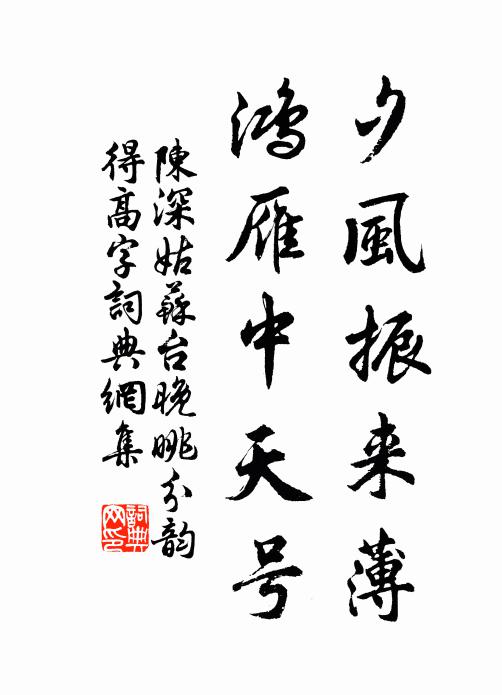 夕風振来薄
鴻雁中天号
陳深姑蘇台晚眺分韵
得高字詞典網集
詞典网印